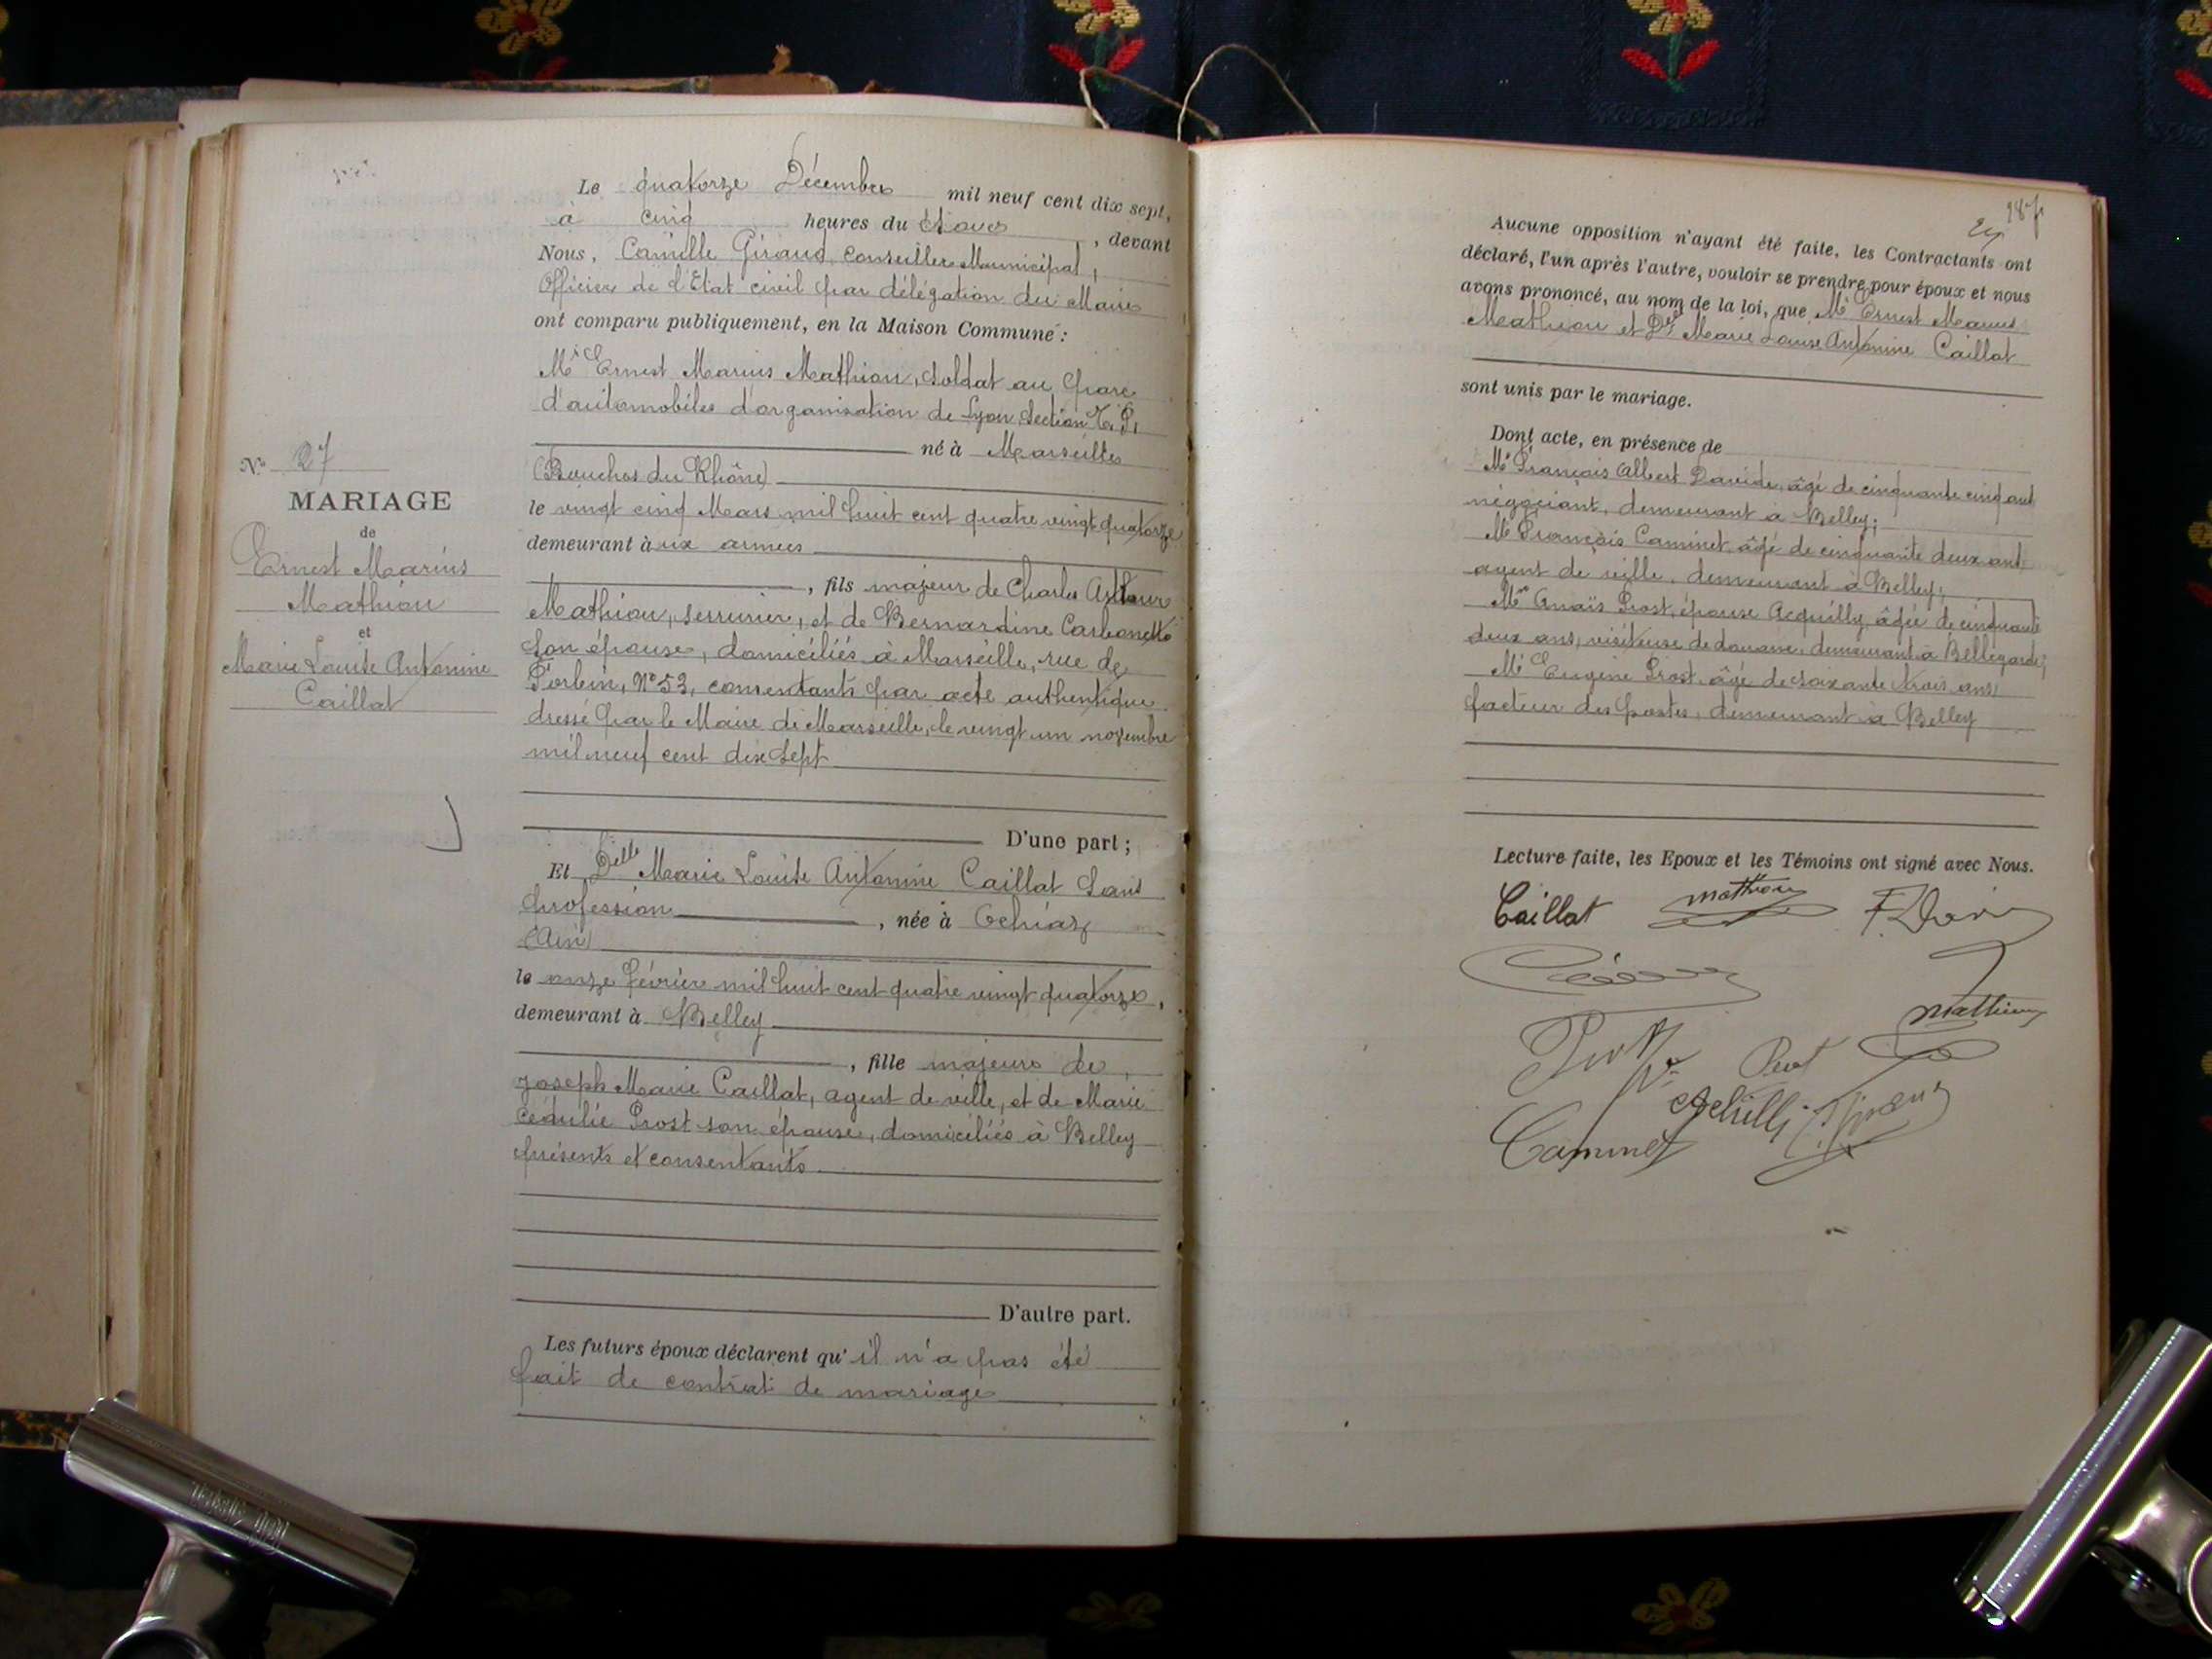 Le quatorze Décembre mil neuf cent dix sept,
à cinq heures du soir, devant
Nous, Camille Giraud, Conseiller Municipal,
Officier de l'Etat civil par délégation du Maire
ont comparu publiquement, en la Maison Commune :
Mr Ernest Marius Mathiou, soldat au parc
d'automobiles d'organisation de Lyon section
né à Marseille
(Bouches du Rhône)
le vingt cinq Mars mil huit cent quatre vingt quatorze
demeurant aux armées
, fils majeur de Charles Arthur
Mathiou, serrurier, et de Bernardine Carbonetto
son épouse, domiciliés à Marseille, rue de
Forbin, N° 53, consentants par acte authentique
dressé par le Maire de Marseille, le vingt un novembre
mil neuf cent dix sept
D'une part ;
Et Delle Marie Louise Antonine Caillat sans
profession, née à Ochiaz
(Ain)
le onze février mil huit cent quatre vingt quatorze,
demeurant à Belley
, fille majeure de
Joseph Marie Caillat, agent de ville, et de Marie
Cédulie Prost son épouse, domiciliés à Belley
présents et consentants
D'autre part.
Les futurs époux déclarent qu'il n'a pas été
fait de contrat de mariage
N° 27
MARIAGE
de
Ernest Marius
Mathiou
et
Marie Louise Antonine
Caillat
187
Aucune opposition n'ayant été faite, les Contractants ont
déclaré, l'un après l'autre, vouloir se prendre pour époux et nous
avons prononcé, au nom de la loi, que Mr Ernest Marius
Mathiou et Dlle Marie Louise Antonine Caillat
sont unis par le mariage.
Dont acte, en présence de
Mr François Albert Davide, âgé de cinquante cinq ans
négociant, demeurant à Belley ;
Mr François Caminet, âgé de cinquante deux ans
agent de ville, demeurant à Belley ;
Mme Anaïs Prost, épouse Acquilly, âgée de cinquante
deux ans, visiteuse de douane, demeurant à Bellegarde ;
Mr Eugène Prost, âgé de soixante trois ans
facteur des postes, demeurant à Belley
Lecture faite, les Epoux et les Témoins ont signé avec Nous.
Caillat mathiou
mathiou
Prost
Caminet